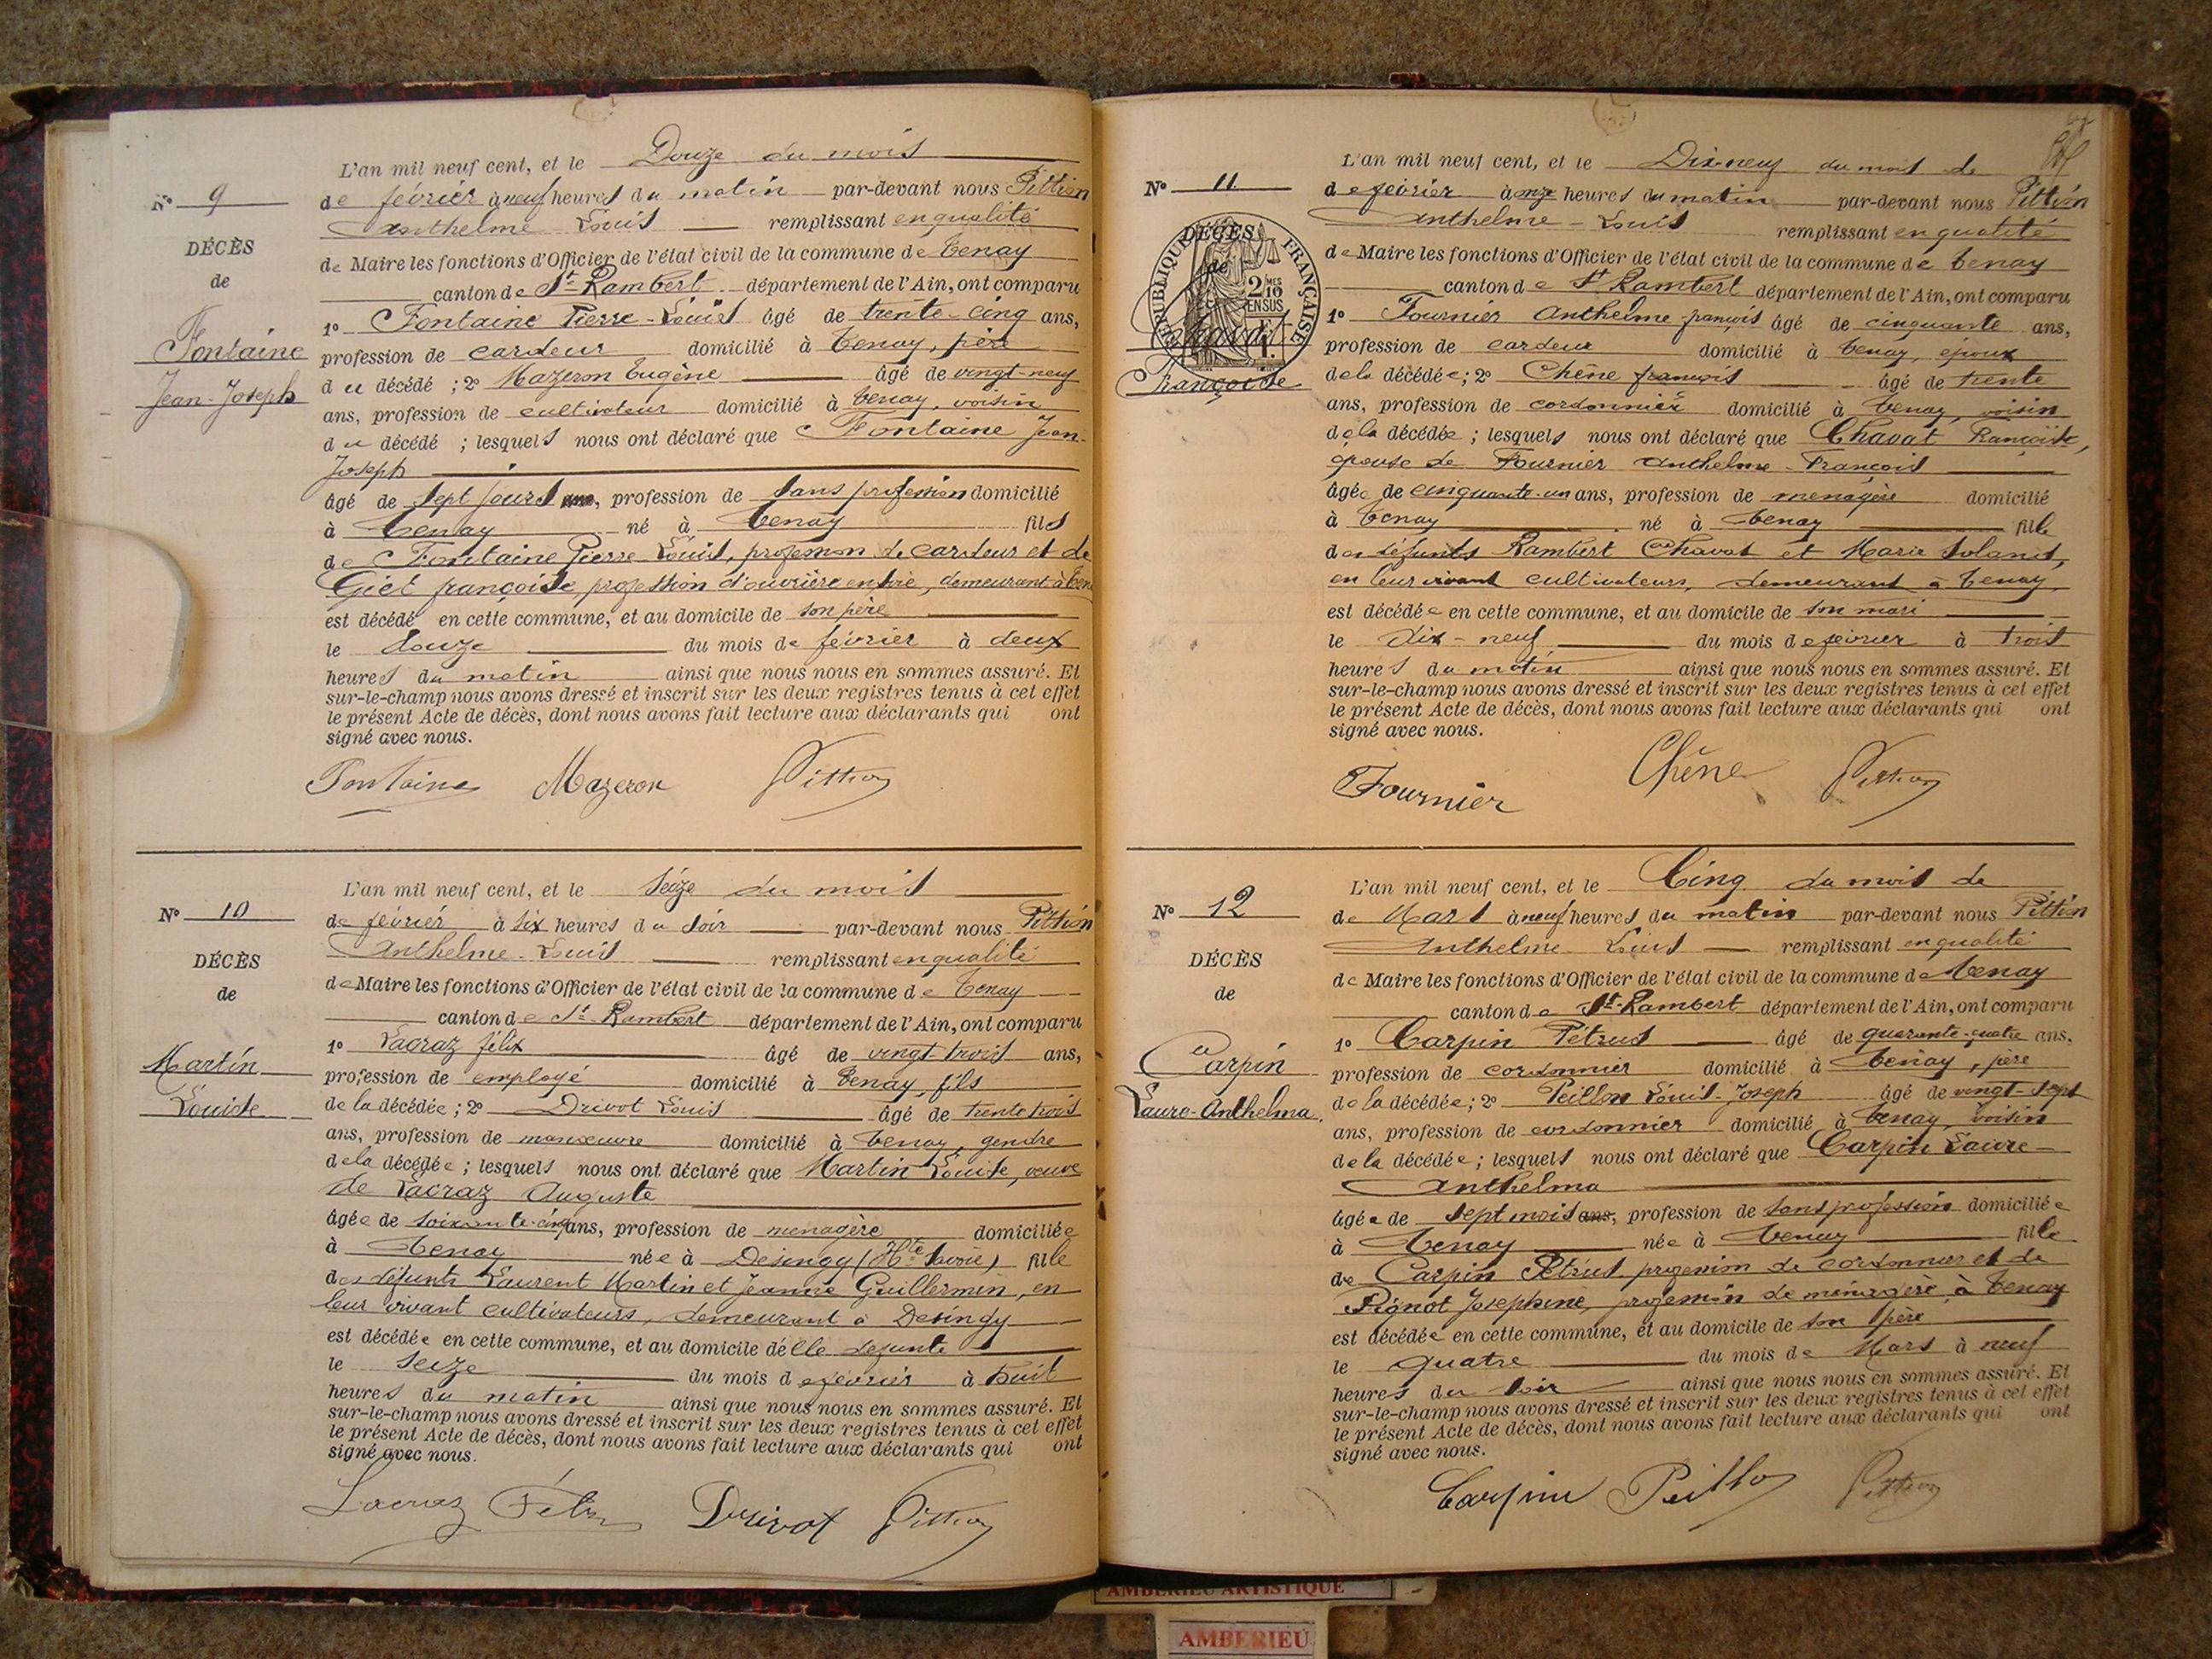 L'an mil neuf cent, et le Douze du mois
de février à neuf heures du matin par-devant nous Pittion
Anthelme Louis remplissant en qualité
de Maire les fonctions d'Officier de l'état civil de la commune de Tenay
canton de St Rambert département de l'Ain, ont comparu
1° Fontaine Pierre-Louis âgé de trente-cinq ans,
profession de cardeur domicilié à Tenay, père
du décédé ; 2° Mazeron Eugène âgé de vingt-neuf
ans, profession de cultivateur domicilié à Tenay, voisin
du décédé ; lesquels nous ont déclaré que Fontaine Jean-
Joseph
âgé de sept jours ans, profession de sans profession domicilié
à Tenay né à Tenay fils
de Fontaine Pierre-Louis, profession de cardeur et de
Giet françoise, profession d'ouvrière en soie, demeurant à Ten
est décédé en cette commune, et au domicile de son père
le douze du mois de février à deux
heures du matin ainsi que nous nous en sommes assuré. Et
sur-le-champ nous avons dressé et inscrit sur les deux registres tenus à cet effet
le présent Acte de décès, dont nous avons fait lecture aux déclarants qui ont
signé avec nous.
Fontaine Mazeron Pittion
N° 9
DÉCÈS
de
Fontaine
Jean-Joseph
L'an mil neuf cent, et le Seize du mois
de février à six heures du soir par-devant nous Pittion
Anthelme-Louis remplissant en qualité
de Maire les fonctions d'Officier de l'état civil de la commune de Tenay
canton de St Rambert département de l'Ain, ont comparu
1° Lacraz félix âgé de vingt trois ans,
profession de employé domicilié à Tenay, fils
de la décédée ; 2° Drivot Louis âgé de trente trois
ans, profession de manœuvre domicilié à Tenay, gendre
de la décédée ; lesquels nous ont déclaré que Martin Louise, veuve
de Lacraz Auguste
âgée de soixante-cinq ans, profession de menagère domiciliée
à Tenay née à Desingy (Hte Savoie) fille
des défunts Laurent Martin et Jeanne Guillermin, en
leur vivant cultivateurs, demeurant à Desingy
est décédée en cette commune, et au domicile d'elle defunte
le seize du mois de février à huit
heures du matin ainsi que nous nous en sommes assuré. Et
sur-le-champ nous avons dressé et inscrit sur les deux registres tenus à cet effet
le présent Acte de décès, dont nous avons fait lecture aux déclarants qui ont
signé avec nous.
Lacraz Félix Drivot Pittion
N° 10
DÉCÈS
de
Martin
Louise
L'an mil neuf cent, et le Dix-neuf du mois de
de février à onze heures du matin par-devant nous Pittion
Anthelme-Louis remplissant en qualité
de Maire les fonctions d'Officier de l'état civil de la commune de Tenay
canton de St Rambert département de l'Ain, ont comparu
1° Fournier Anthelme-françois âgé de cinquante ans,
profession de cardeur domicilié à Tenay, époux
de la décédée ; 2° Chêne françois âgé de trente
ans, profession de cordonnier domicilié à Tenay, voisin
de la décédée ; lesquels nous ont déclaré que Chavat Françoise,
épouse de Fournier Anthelme-François
âgée de cinquante-un ans, profession de menagère domicilié
à Tenay né à Tenay fille
des défunts Rambert Chavat et Marie Joland,
en leur vivant cultivateurs, demeurant à Tenay
est décédée en cette commune, et au domicile de son mari
le dix-neuf du mois de février à trois
heures du matin ainsi que nous nous en sommes assuré. Et
sur-le-champ nous avons dressé et inscrit sur les deux registres tenus à cet effet
le présent Acte de décès, dont nous avons fait lecture aux déclarants qui ont
signé avec nous.
Fournier Chêne Pittion
N° 11
DÉCÈS
de
Chavat
Françoise
RÉPUBLIQUE FRANÇAISE
2 MES
10
EN SUS
L'an mil neuf cent, et le Cinq du mois de
de Mars à neuf heures du matin par-devant nous Pittion
Anthelme-Louis remplissant en qualité
de Maire les fonctions d'Officier de l'état civil de la commune de Tenay
canton de St-Rambert département de l'Ain, ont comparu
1° Carpin Pétrus âgé de quarante-quatre ans,
profession de cordonnier domicilié à Tenay, père
de la décédée ; 2° Peillon Louis-Joseph âgé de vingt-sept
ans, profession de cordonnier domicilié à Tenay, voisin
de la décédée ; lesquels nous ont déclaré que Carpin Laure-
Anthelma
âgée de sept mois ans, profession de sans profession domiciliée
à Tenay née à Tenay fille
de Carpin Pétrus, profession de cordonnier et de
Pignot Josephine, profession de ménagère, à Tenay
est décédée en cette commune, et au domicile de son père
le quatre du mois de Mars à neuf
heures du soir ainsi que nous nous en sommes assuré. Et
sur-le-champ nous avons dressé et inscrit sur les deux registres tenus à cet effet
le présent Acte de décès, dont nous avons fait lecture aux déclarants qui ont
signé avec nous.
Carpin Peillon Pittion
N° 12
DÉCÈS
de
Carpin
Laure-Anthelma
AMBERIEU ARTISTIQUE
AMBERIEU